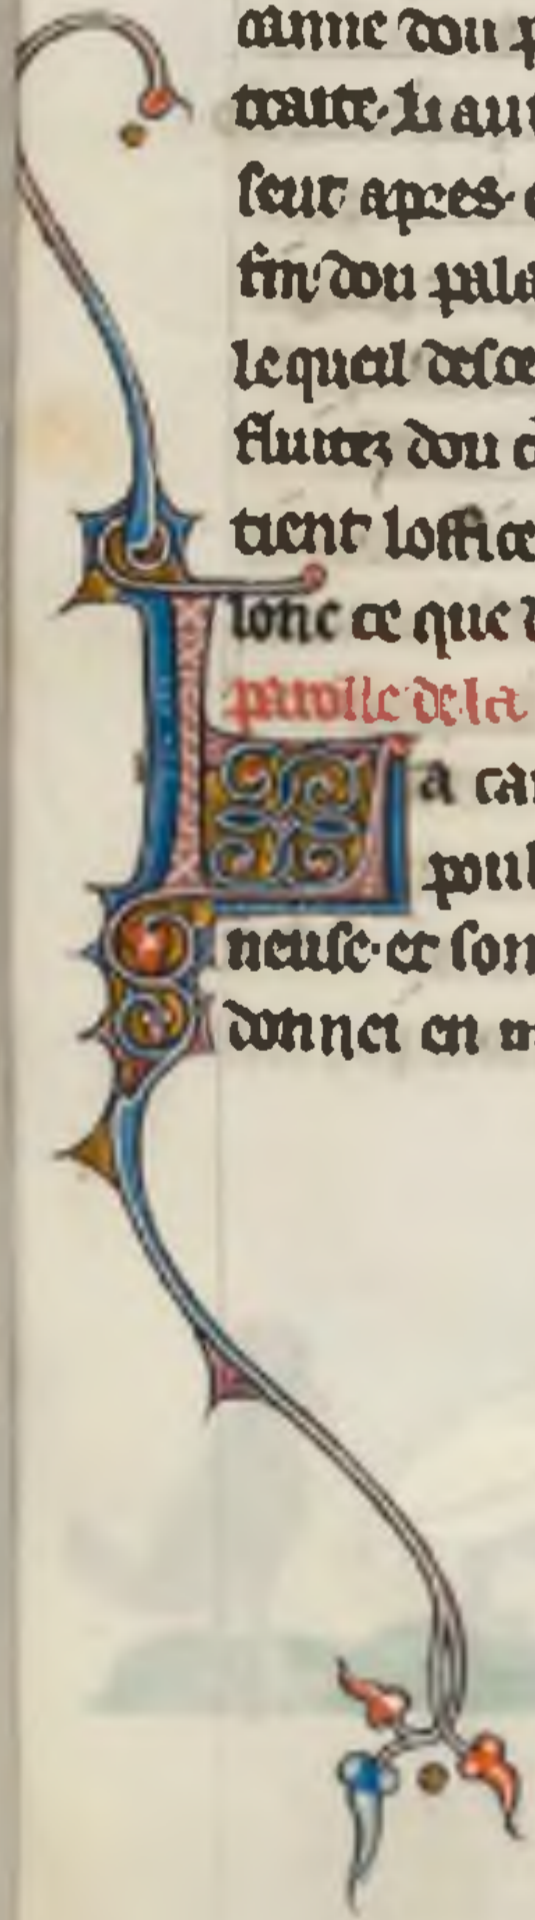 canne dou p
traite. li aut
seut apres.
fin dou pala
le queil desce
fluites dou c
tient loffice
lonc ce que d
parolle de la
La can
poul
neuse. et son
donnei en m